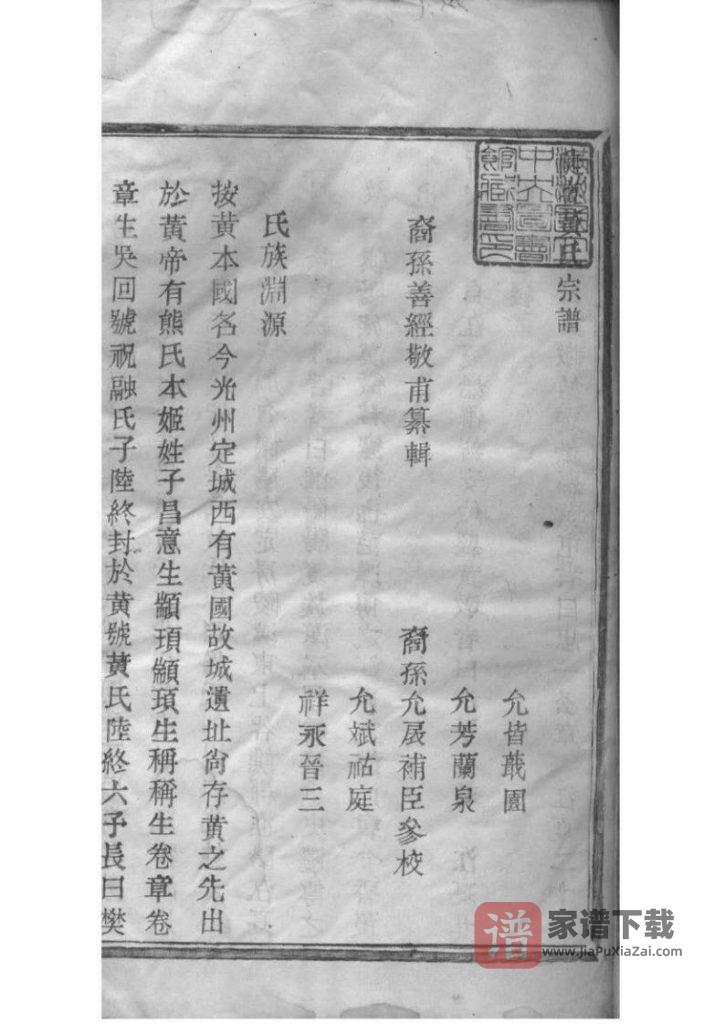 黃氏宗譜
允皆戢園
允芳蘭泉
裔孫善經敬甫纂輯
裔孫允晟補臣參校
允斌祜庭
祥永晉三
氏族淵源
按黃本國名今光州定城西有黃國故城遺址尙存黃之先出
於黃帝有熊氏本姬姓子昌意生顓頊顓頊生稱稱生卷章卷
章生吳回號祝融氏子陸終封於黃號黃氏陸終六子長曰樊
譜 家谱下载
www.jiaPuXiaZai.com